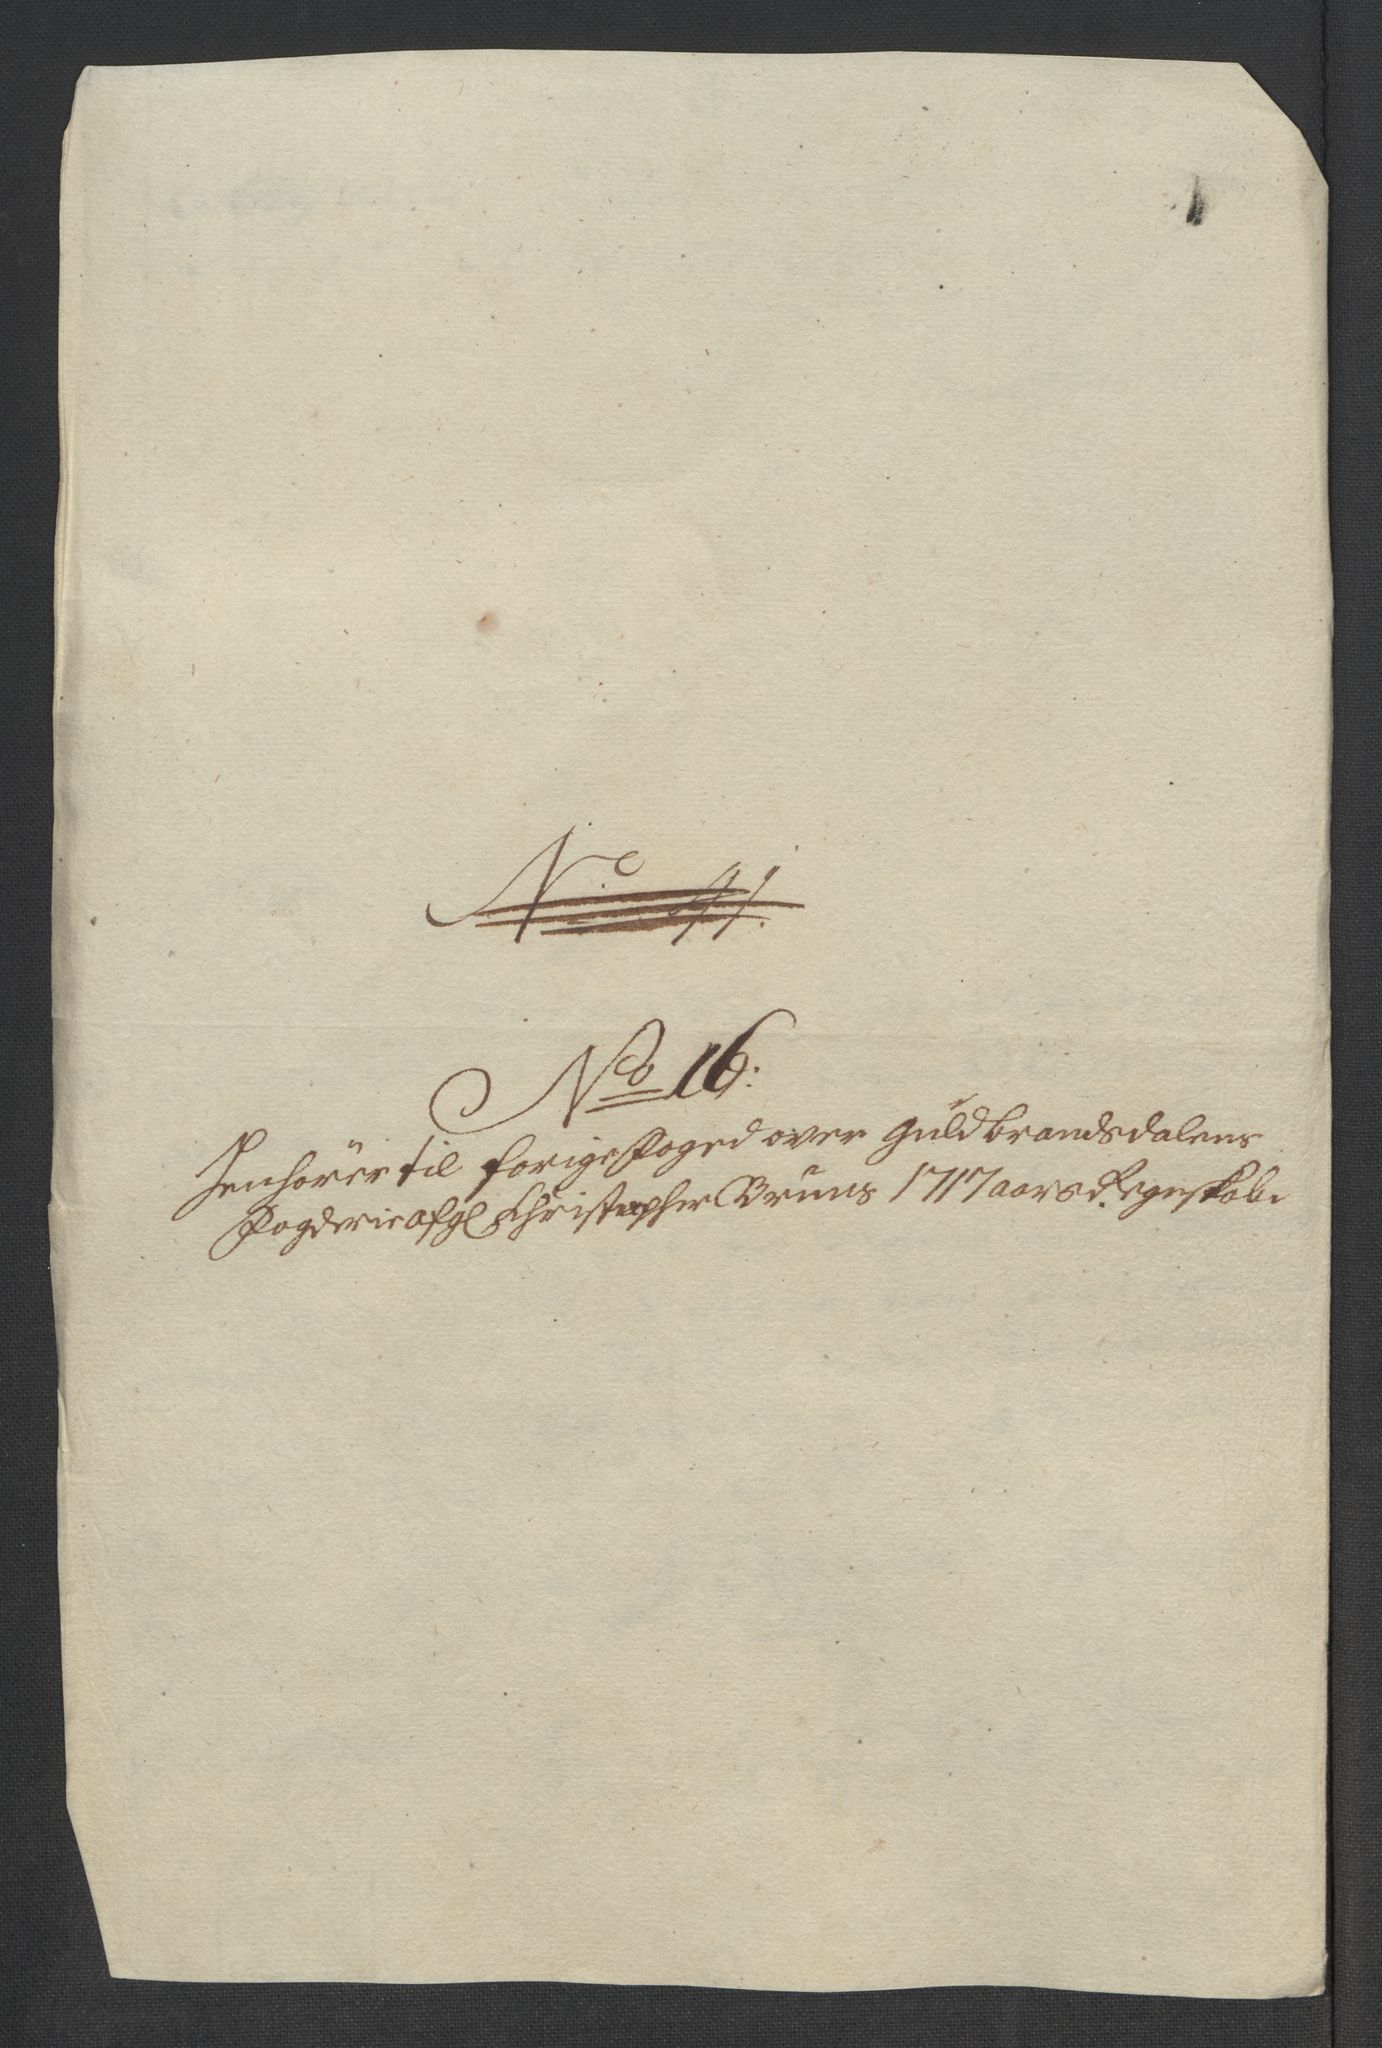 N.º 41.
No 16:
Henhører til forige Foged over Guldbrandsdalens
Fogderie afgl Christopher Bruns 1717 aars Regenskab